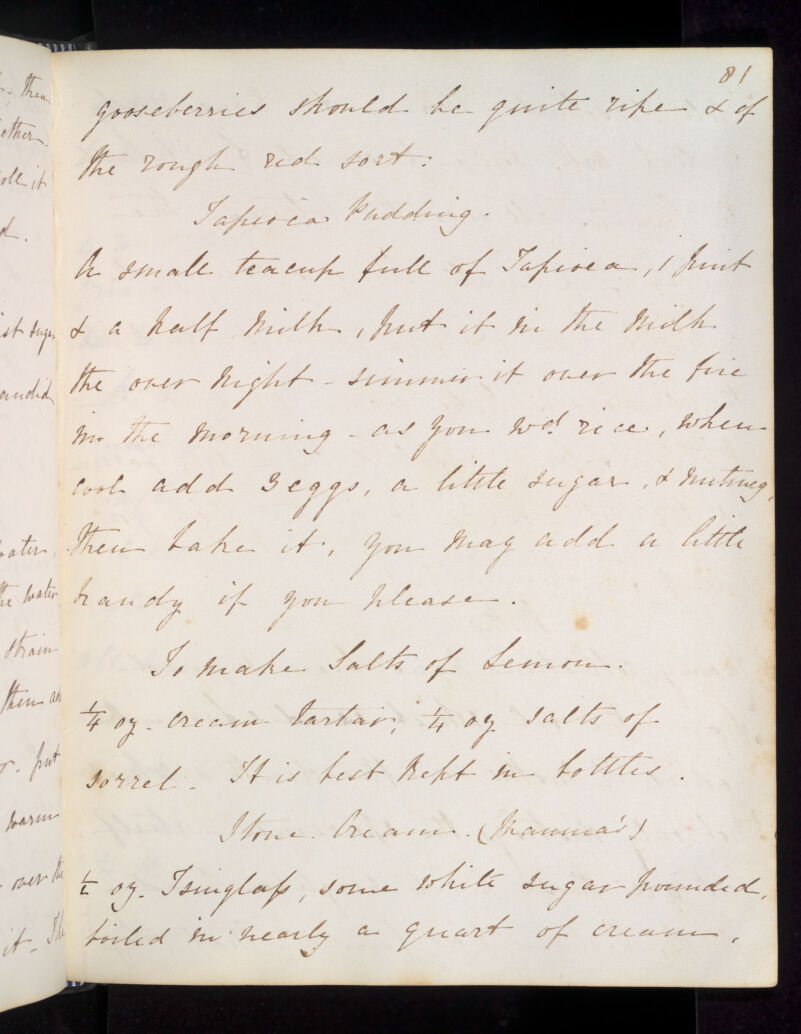 81
gooseberries should be quite ripe & of
the rough red sort:
Tapioca Pudding.
A small teacup full of Tapioca, 1 pint
& a half Milk, put it in the Milk
the over night - simmer it over the fire
in the morning - as you wd. rice, when
cool add 3 eggs, a little sugar, & nutmeg,
then bake it, you may add a little
brandy if you please.
To make Salts of Lemon.
¼ oz. cream tartar, ¼ oz salts of
sorrel. It is best kept in bottles.
Stone Cream. (Mamma's)
½ oz. Isinglass, some white sugar pounded,
boiled in nearly a quart of cream,
then
other.
oll it
d.
st sugar
candid
water,
the water
strain
then
put
warm
over the
it.